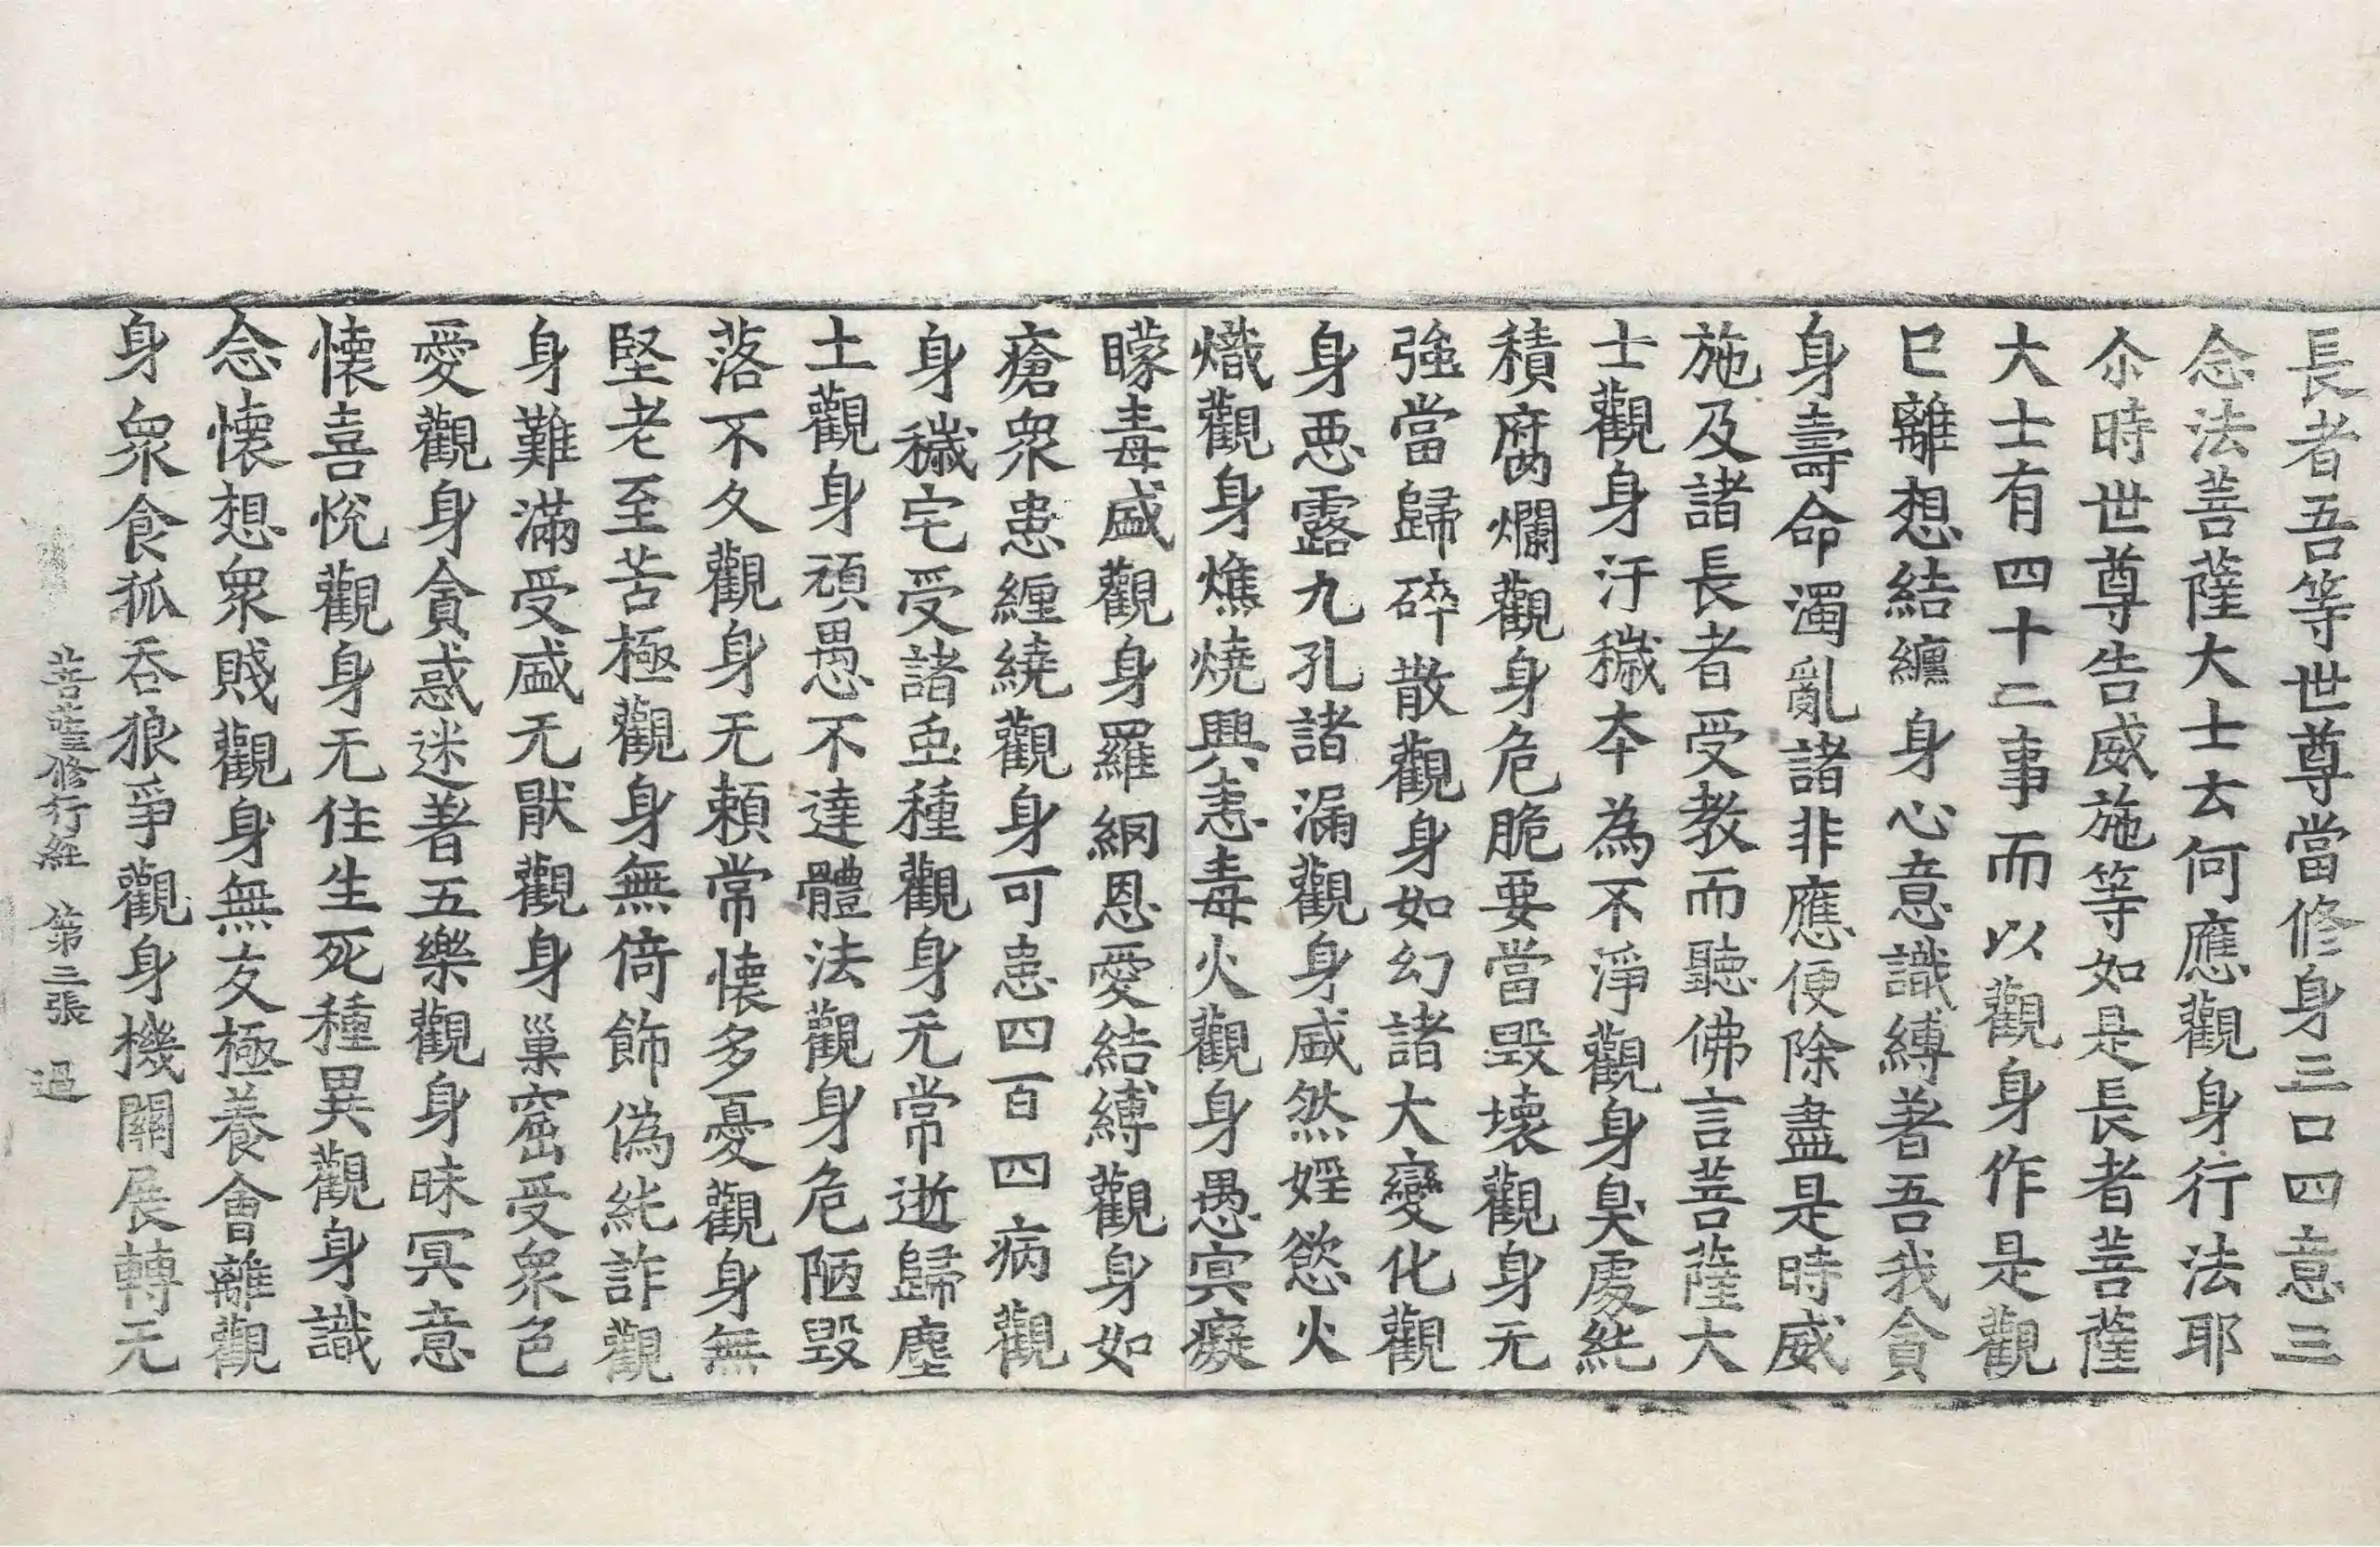 長者吾等世尊當修身三口四意三
念法菩薩大士去何應觀身行法耶
尒時世尊告威施等如是長者菩薩
大士有四十二事而以觀身作是觀
已離想結纏身心意識縛著吾我貪
身壽命濁亂諸非應便除盡是時威
施及諸長者受教而聽佛言菩薩大
士觀身汙穢夲為不淨觀身臭處純
積腐爛觀身危脆要當毀壞觀身无
強當歸碎散觀身如幻諸大變化觀
身惡露九孔諸漏觀身盛然婬慾火
熾觀身燋燒興恚毒火觀身愚㝠癡
矇毒盛觀身羅網恩愛結縛觀身如
瘡衆患纏繞觀身可患四百四病觀
身穢宅受諸虫種觀身无常逝歸塵
土觀身頑愚不達體法觀身危陋毀
落不久觀身无賴常懷多憂觀身無
堅老至苦極觀身無倚飾偽純詐觀
身難滿受盛无猒觀身巢窟受衆色
愛觀身貪惑迷著五樂觀身昧冥意
懷喜悅觀身无住生死種異觀身識
念懷想衆賤觀身無友極養會離觀
身衆食狐吞狼爭觀身機關展轉无
菩薩修行經 第三張 過